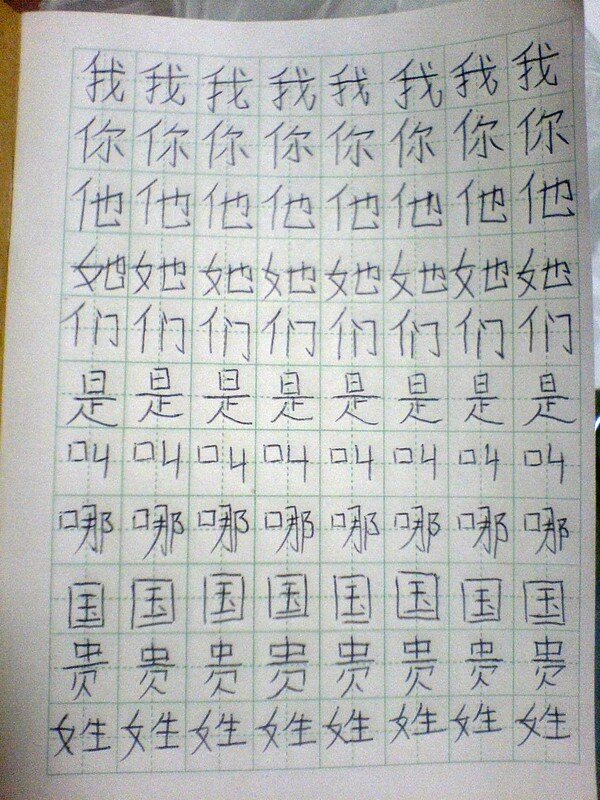 我我我我我我我我
你你你你你你你你
他他他他他他他他
她她她她她她她她
们们们们们们们们
是是是是是是是是
叫叫叫叫叫叫叫叫
哪哪哪哪哪哪哪哪
国国国国国国国国
贵贵贵贵贵贵贵贵
姓姓姓姓姓姓姓姓